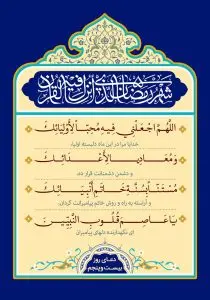 شهر رمضان الذي انزل فيه القرآن
اللَّهُمَّ اجْعَلْنِي فِيهِ مُحِبّاً لِأَوْلِيَائِكَ
خدایا مرا در این ماه دلبسته اولیاء
وَ مُعَادِياً لِأَعْدَائِكَ
و دشمن دشمنانت قرار ده
مُسْتَنّاً بِسُنَّةِ خَاتَمِ أَنْبِيَائِكَ
و آراسته به راه و روش خاتم پیامبرانت گردان،
يَا عَاصِمَ قُلُوبِ النَّبِيِّينَ
ای نگهدارنده دلهای پیامبران
دعـای روز
بیست و پنجم